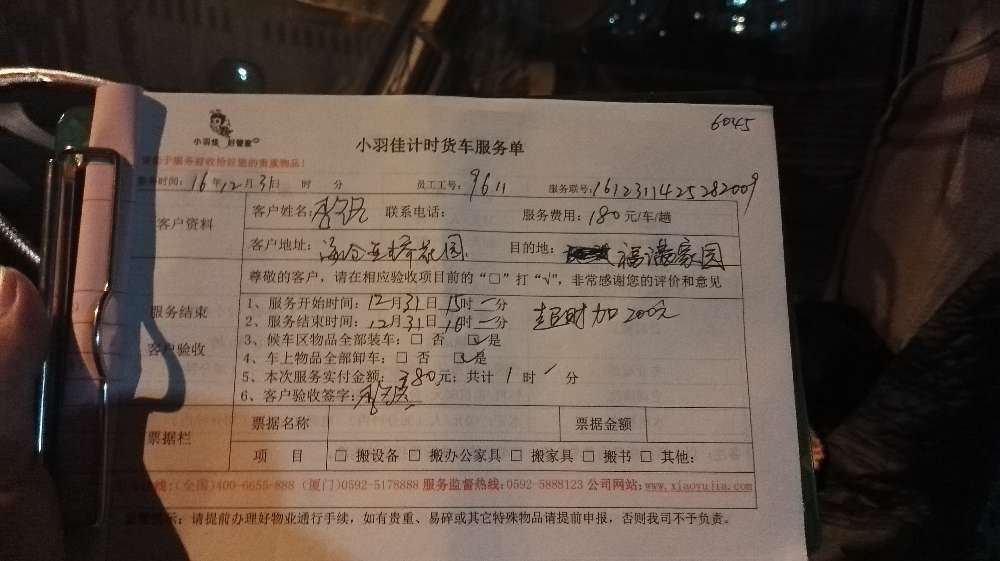 6045
小羽佳 好管家
小羽佳计时货车服务单
服务时间：16年12月31日 时 分 员工工号：9611 服务联号：1612311425282009
客户资料
客户姓名： 联系电话： 服务费用：180元/车/趟
客户地址： 花园 目的地： 福满家园
尊敬的客户，请在相应验收项目前的“□”打“√”，非常感谢您的评价和意见
服务结束
客户验收
1、服务开始时间：12月31日15时一分
2、服务结束时间：12月31日16时一分 超时加200元
3、候车区物品全部装车：□ 否 ☑是
4、车上物品全部卸车：□ 否 ☑是
5、本次服务实付金额：380元；共计1时一分
6、客户验收签字：
票据栏
票据名称 票据金额
项 目 □ 搬设备 □ 搬办公家具 □ 搬家具 □ 搬书 □ 其他:
热线:(全国)400-6655-888 (厦门)0592-5178888 服务监督热线:0592-5888123 公司网站:www.xiaoyujia.com
提示：请提前办理好物业通行手续，如有贵重、易碎或其它特殊物品请提前申报，否则我司不予负责。